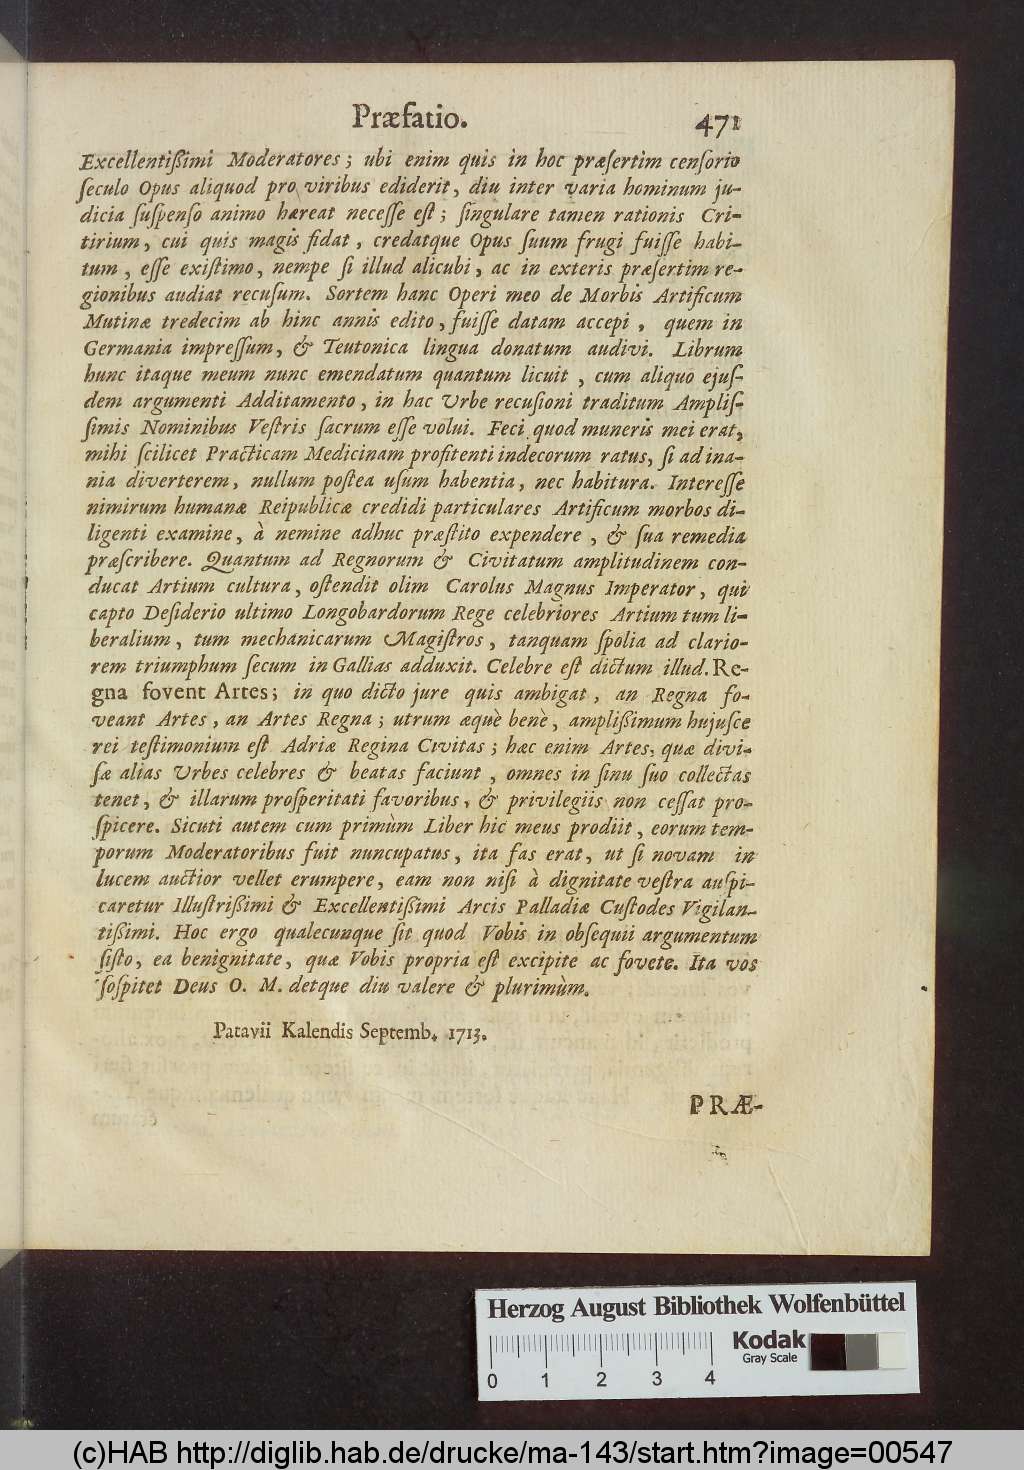 Præfatio. 471
Excellentißimi Moderatores; ubi enim quis in hoc præſertim cenſorio
ſeculo Opus aliquod pro viribus ediderit, diu inter varia hominum ju-
dicia ſuſpenſo animo hæreat neceſſe eſt; ſingulare tamen rationis Cri-
tirium, cui quis magis fidat, credatque Opus ſuum frugi fuiſſe habi-
tum, eſſe exiſtimo, nempe ſi illud alicubi, ac in exteris præſertim re-
gionibus audiat recuſum. Sortem hanc Operi meo de Morbis Artificum
Mutinæ tredecim ab hinc annis edito, fuiſſe datam accepi, quem in
Germania impreſſum, & Teutonica lingua donatum audivi. Librum
hunc itaque meum nunc emendatum quantum licuit, cum aliquo ejuſ-
dem argumenti Additamento, in hac Urbe recuſioni traditum Ampliſ-
ſimis Nominibus Veſtris ſacrum eſſe volui. Feci quod muneris mei erat,
mihi ſcilicet Practicam Medicinam profitenti indecorum ratus, ſi ad ina-
nia diverterem, nullum poſtea uſum habentia, nec habitura. Intereſſe
nimirum humanæ Reipublicæ credidi particulares Artificum morbos di-
ligenti examine, à nemine adhuc præſtito expendere, & ſua remedia
præſcribere. Quantum ad Regnorum & Civitatum amplitudinem con-
ducat Artium cultura, oſtendit olim Carolus Magnus Imperator, qui
capto Deſiderio ultimo Longobardorum Rege celebriores Artium tum li-
beralium, tum mechanicarum Magiſtros, tanquam ſpolia ad clario-
rem triumphum ſecum in Gallias adduxit. Celebre eſt dictum illud. Re-
gna fovent Artes; in quo dicto jure quis ambigat, an Regna fo-
veant Artes, an Artes Regna; utrum æquè benè, amplißimum hujuſce
rei teſtimonium eſt Adriæ Regina Civitas; hæc enim Artes, quæ divi-
ſæ alias Urbes celebres & beatas faciunt, omnes in ſinu ſuo collectas
tenet, & illarum proſperitati favoribus, & privilegiis non ceſſat pro-
ſpicere. Sicuti autem cum primùm Liber hic meus prodiit, eorum tem-
porum Moderatoribus fuit nuncupatus, ita fas erat, ut ſi novam in
lucem auctior vellet erumpere, eam non niſi à dignitate veſtra auſpi-
caretur Illuſtrißimi & Excellentißimi Arcis Palladiæ Cuſtodes Vigilan-
tißimi. Hoc ergo qualecunque ſit quod Vobis in obſequii argumentum
ſiſto, ea benignitate, quæ Vobis propria eſt excipite ac fovete. Ita vos
ſoſpitet Deus O. M. detque diu valere & plurimùm.
Patavii Kalendis Septemb. 1713.
PRÆ-
Herzog August Bibliothek Wolfenbüttel
Kodak
Gray Scale
0 1 2 3 4
(c)HAB http://diglib.hab.de/drucke/ma-143/start.htm?image=00547